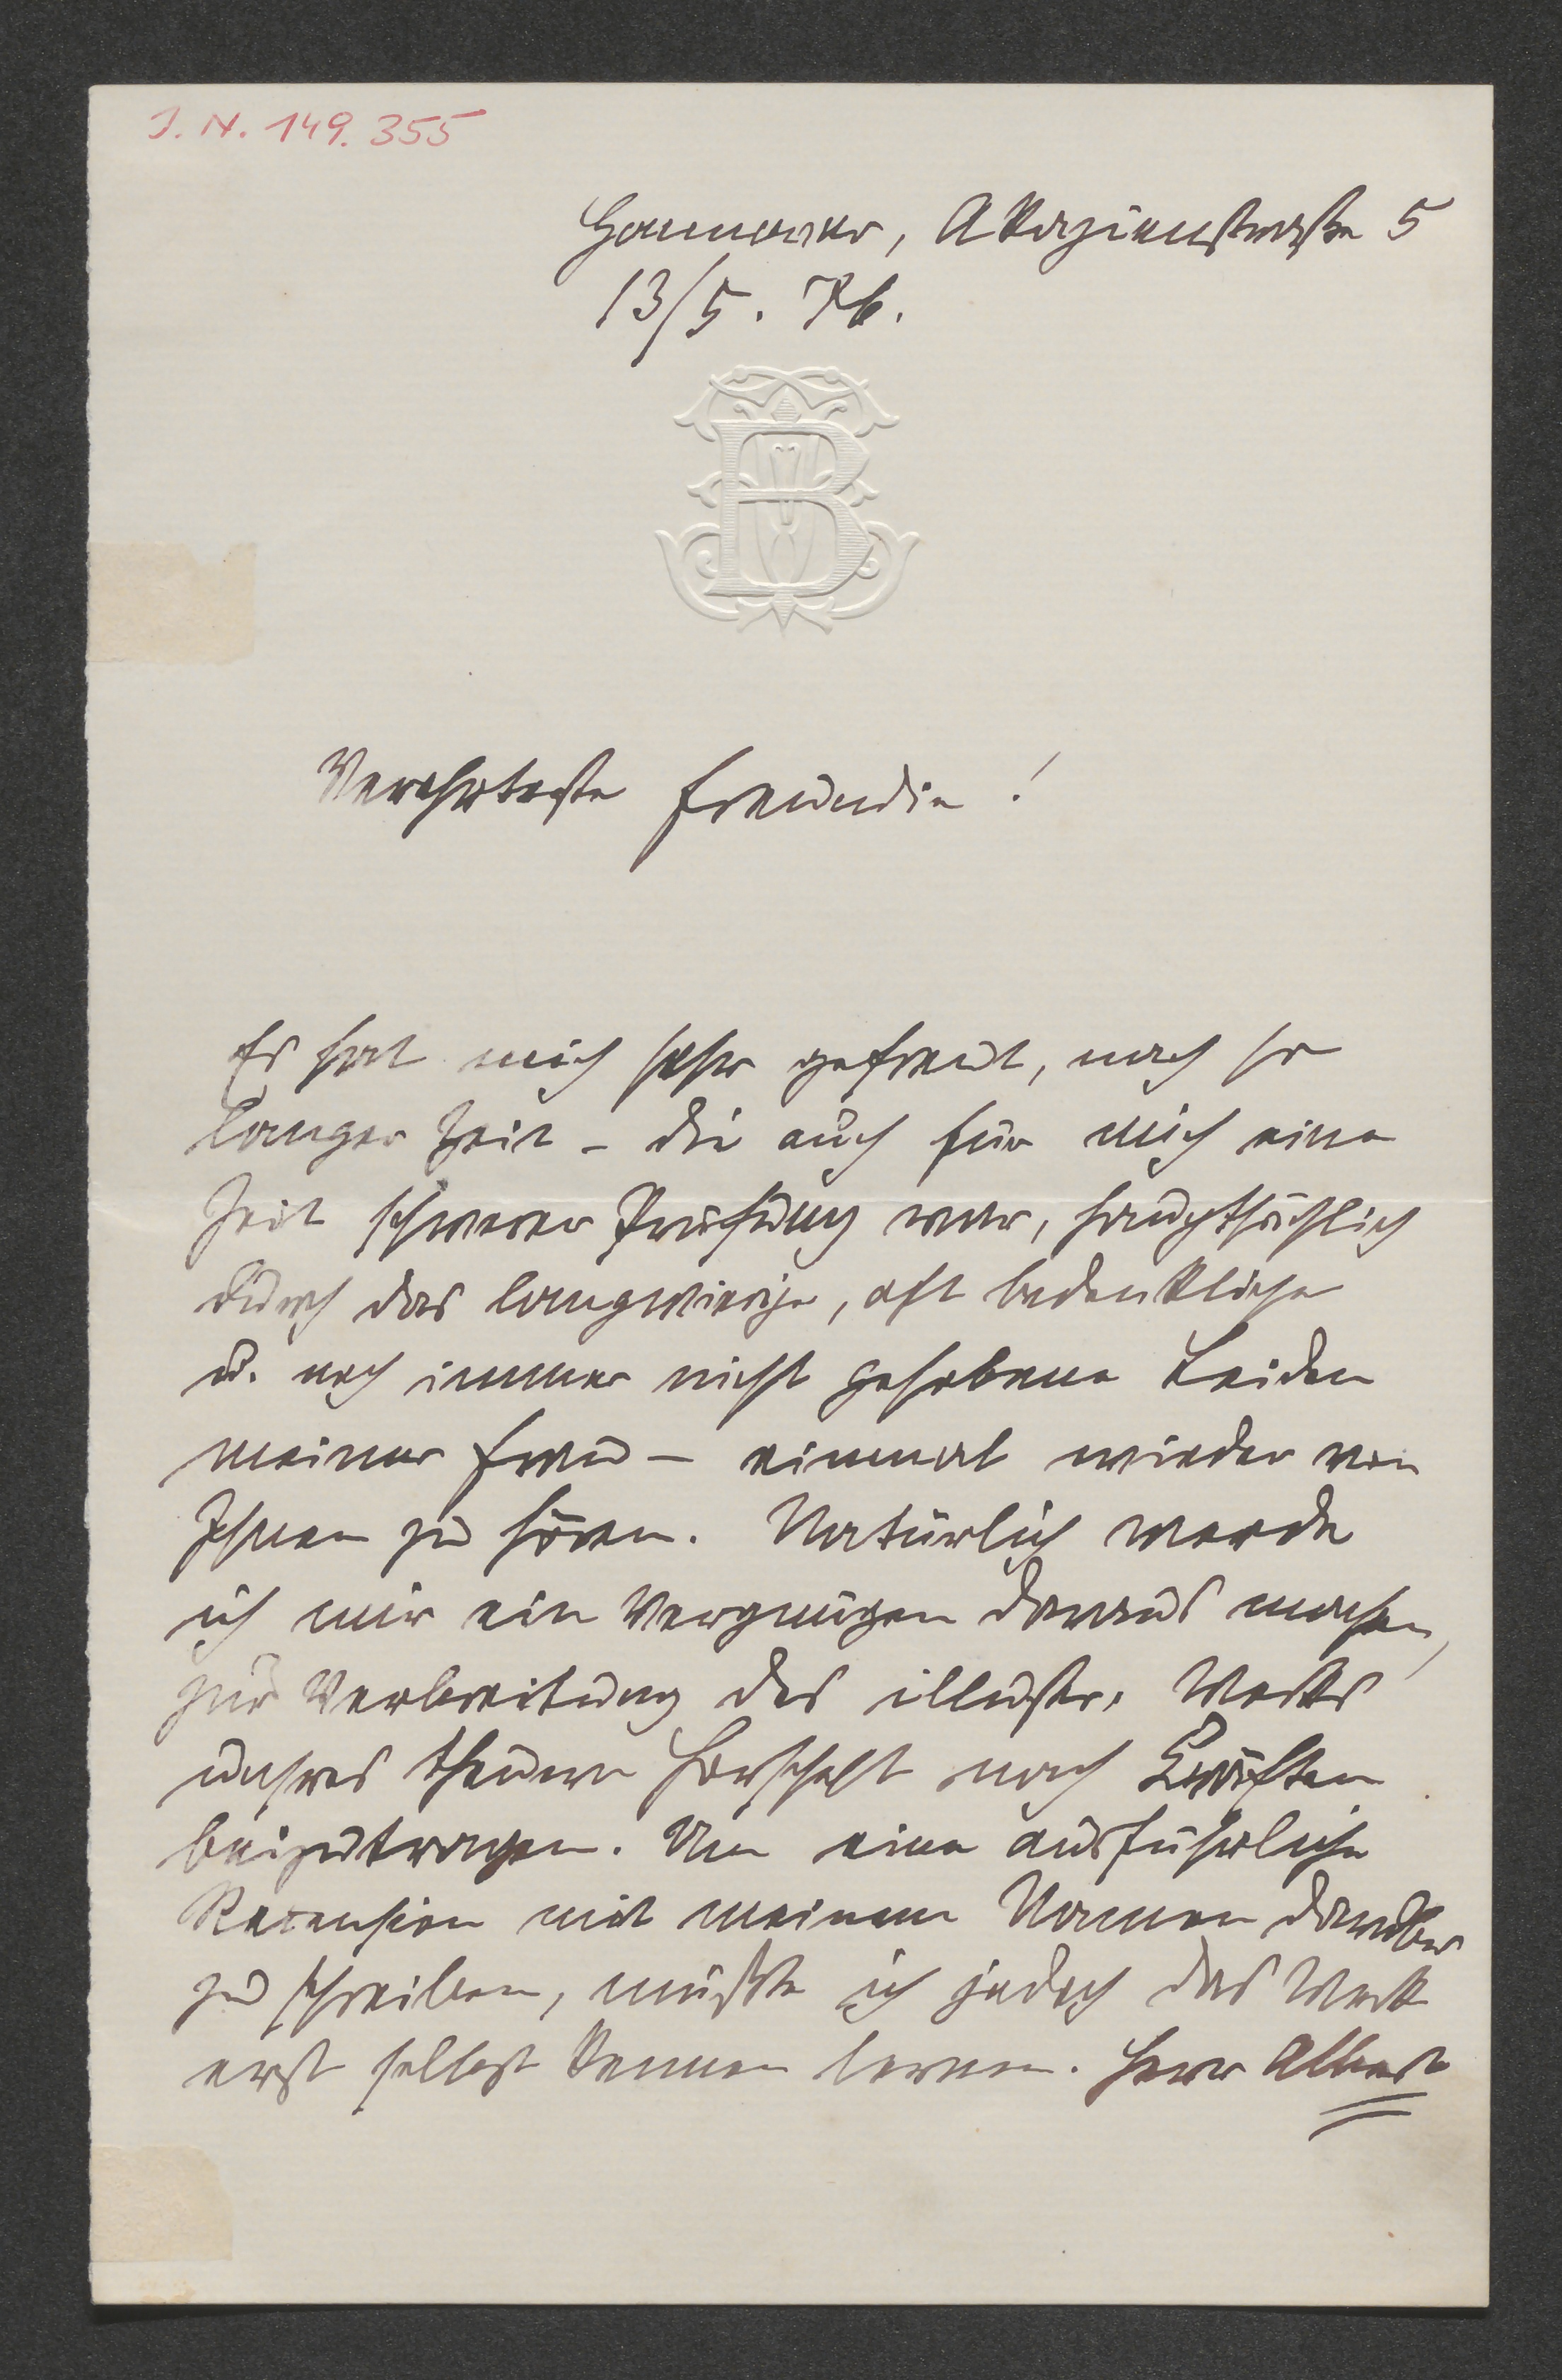 J. N. 149.355
Hannover, Akazienstraße 5
13/5. 76.
B
Verehrteste Freundin!
Es hat mich sehr gefreut, nach so
langer Zeit – die auch für mich eine
Zeit schwerer Prüfung war, hauptsächlich
durch das langwierige, oft bedenkliche
u. noch immer nicht gehobene Leiden
meiner Frau – einmal wieder von
Ihnen zu hören. Natürlich werde
ich mir ein Vergnügen daraus machen,
zur Verbreitung des illustr. Werks
unsres theuern nach Kräften
beizutragen. Um eine ausführliche
Recension mit meinem Namen darüber
zu schreiben, müßte ich jedoch das Werk
erst selbst kennen lernen. Herr Albert